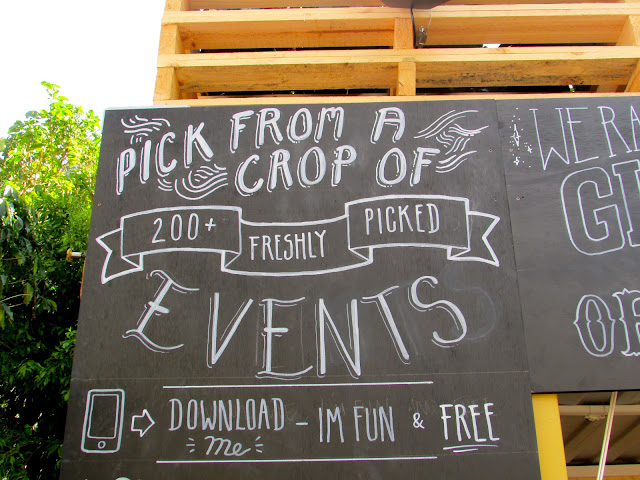 PICK FROM A
CROP OF
200+ FRESHLY PICKED
EVENTS
DOWNLOAD - IM FUN & FREE
Me
WE RA